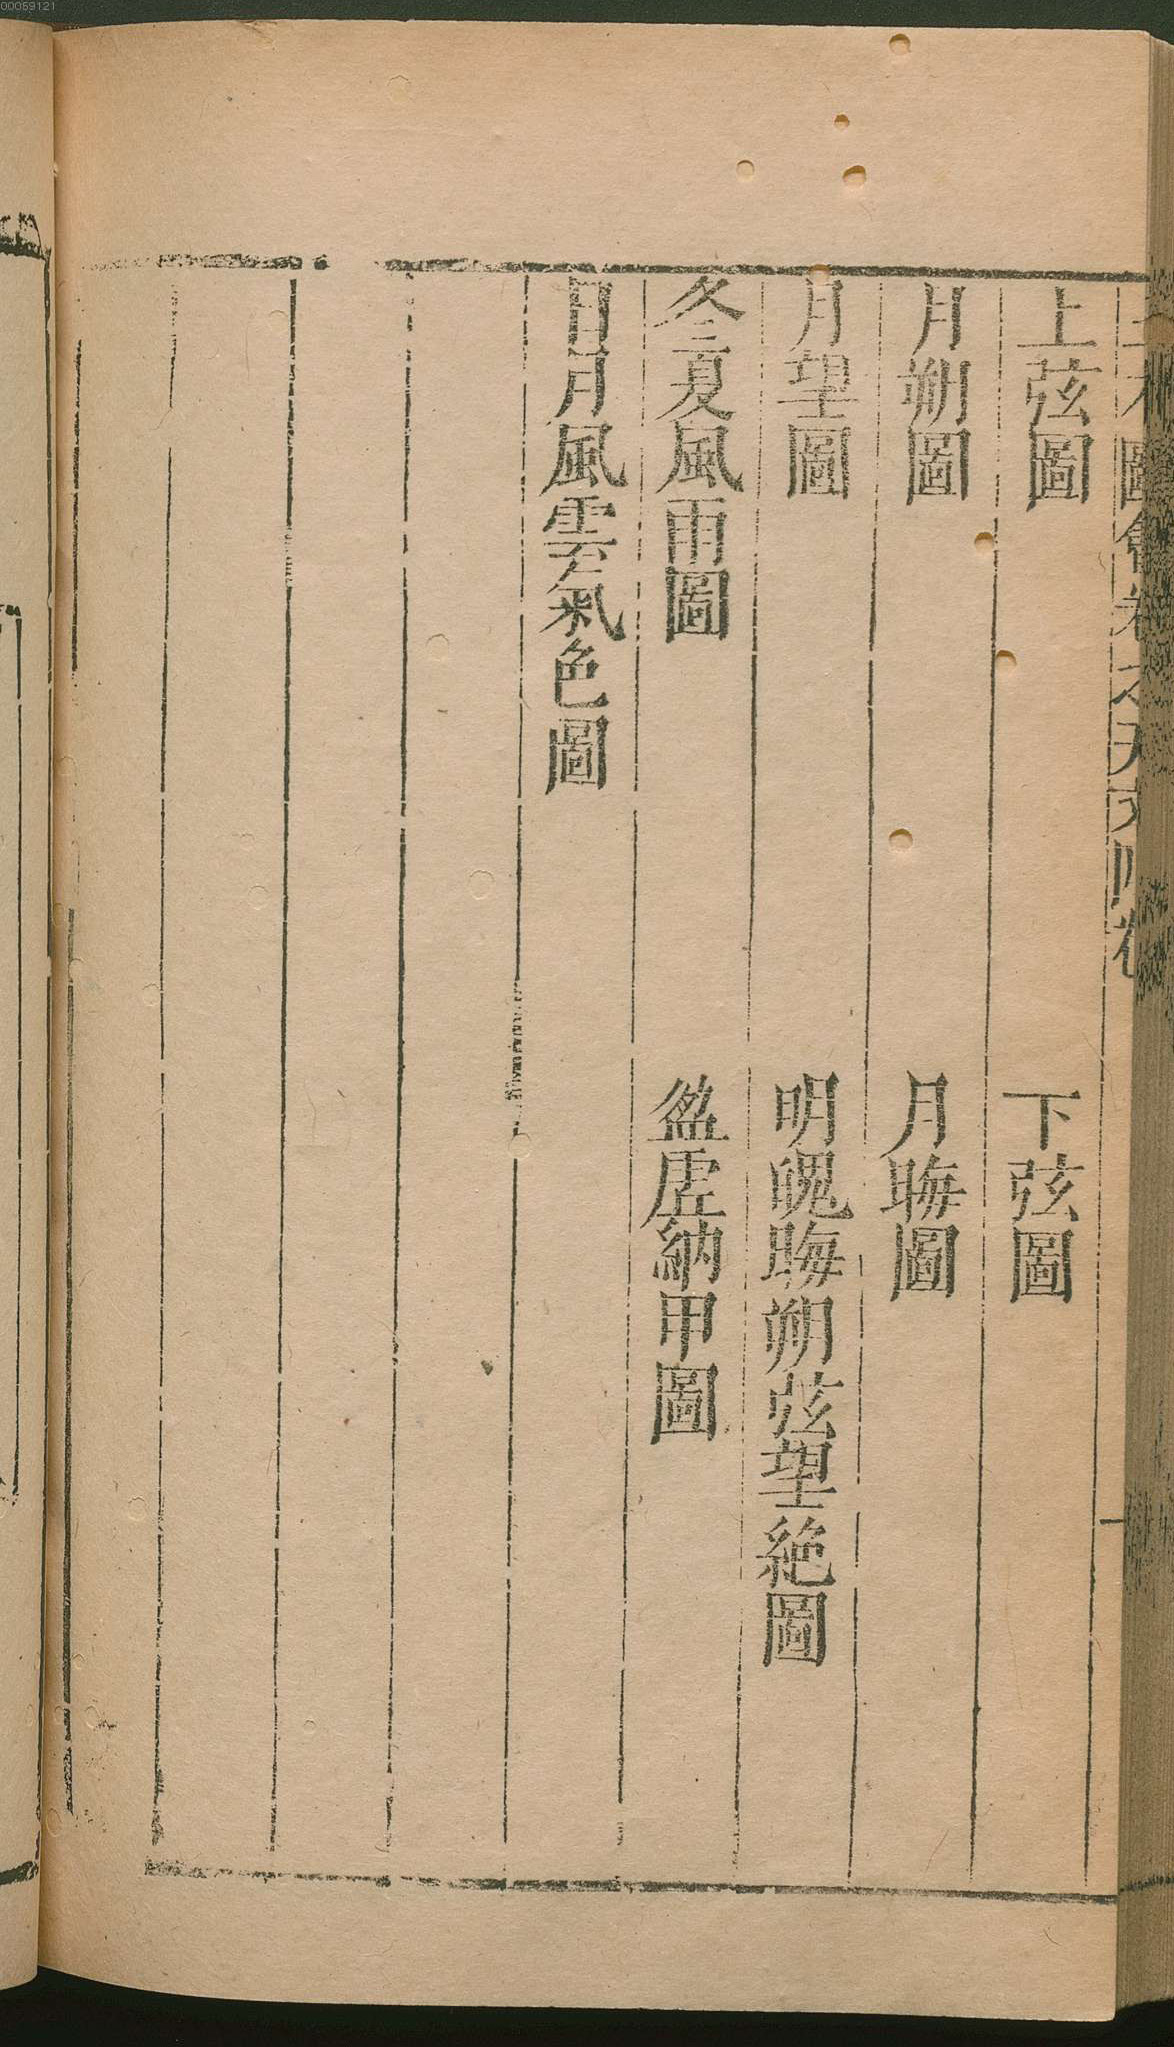 00059121
上弦圖
下弦圖
月朔圖
月晦圖
月望圖
明魄晦朔弦望絶圖
冬夏風雨圖
盈虛納甲圖
日月風雲氣色圖